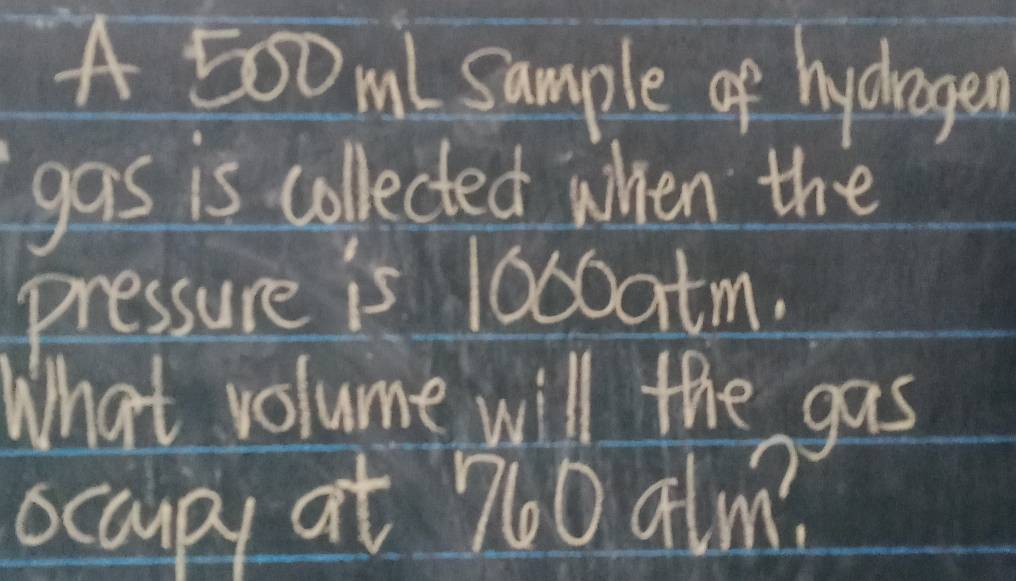 A 500 mL sample of hydrogen
gas is collected when the
pressure is 1000atm.
What volume will the gas
occupy at 760 atm?